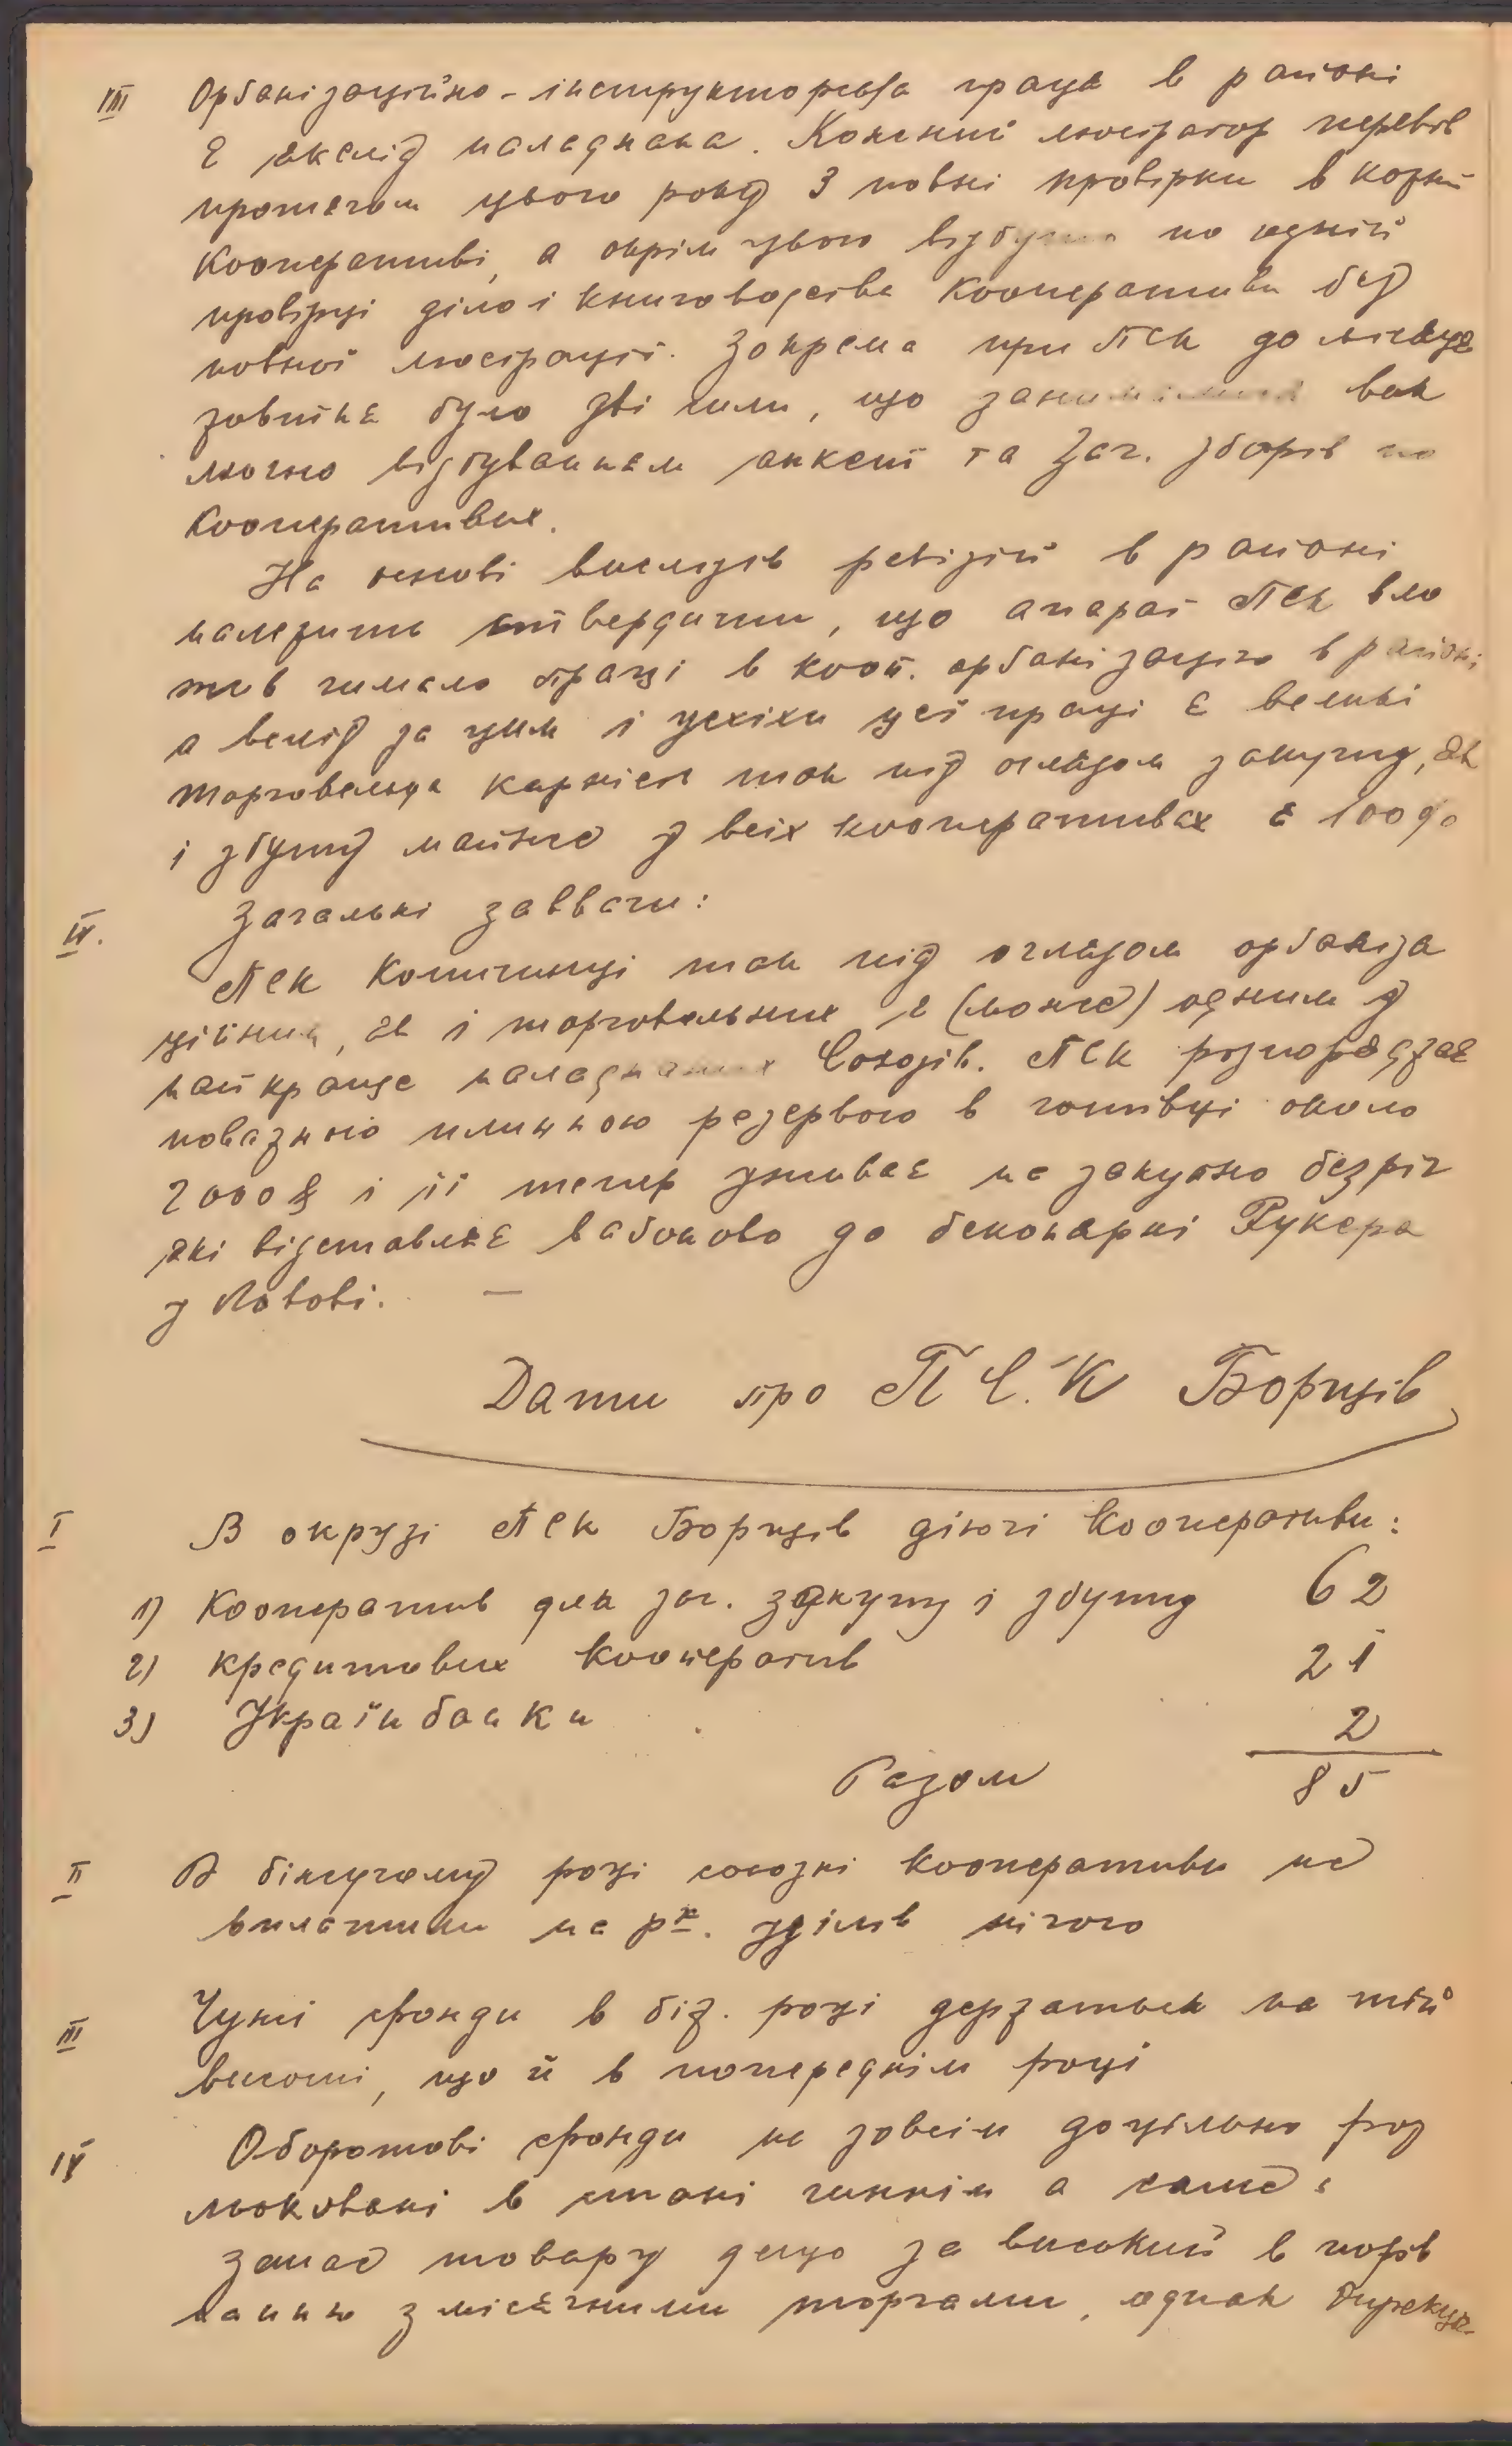 III Орґанізаційно-інструкторська праця в районі
є якслід наладнана. Кожний люстратор перевів
протягом цього року 3 повні провірки в кожній
кооперативі, а окрім цього відбув по одній
провірці діло і книговодства кооперативи без
повної люстрації. Зокрема при ПСК до місяця
жовтня було два чили, що займалися вик
лючно відбуванням анкет та Заг. зборів по
кооперативах.
На основі вислідів ревізій в районі
належить ствердити, що апарат ПСК вло
жив чимало праці в кооп. орґанізацію в районі
а вслід за цим і успіхи цеї праці є великі
торговельна карність так під оглядом закупу, як
і збуту майже у всіх кооперативах є 100%
IV. Загальні завваги:
ПСК Копичинці так під оглядом орґаніза
ційним, як і торговельним є (може) одним з
найкраще наладнаних Союзів. ПСК розпоряджає
поважною плинною резервою в готівці около
2000 $ і її тепер уживає на закупно безріг
які відставляє вагоново до беконярні Рукера
у Львові. —
Дати про П С. К Борщів
I В окрузі ПСК Борщів діючі кооперативи:
1) Кооператив для заг. закупу і збуту 62
2) кредитових кооператив 21
3) Українбанки 2
Разом 85
II В біжучому році союзні кооперативи не
вплатили на рк. уділів нічого
III Чужі фонди в біж. році держаться на тій
висоті, що й в попереднім році
IV Оборотові фонди не зовсім доцільно роз
мюковані в стані чиннім а саме:
запас товару дещо за високий в порів
нанню з місячними торгами, однак Дирекція